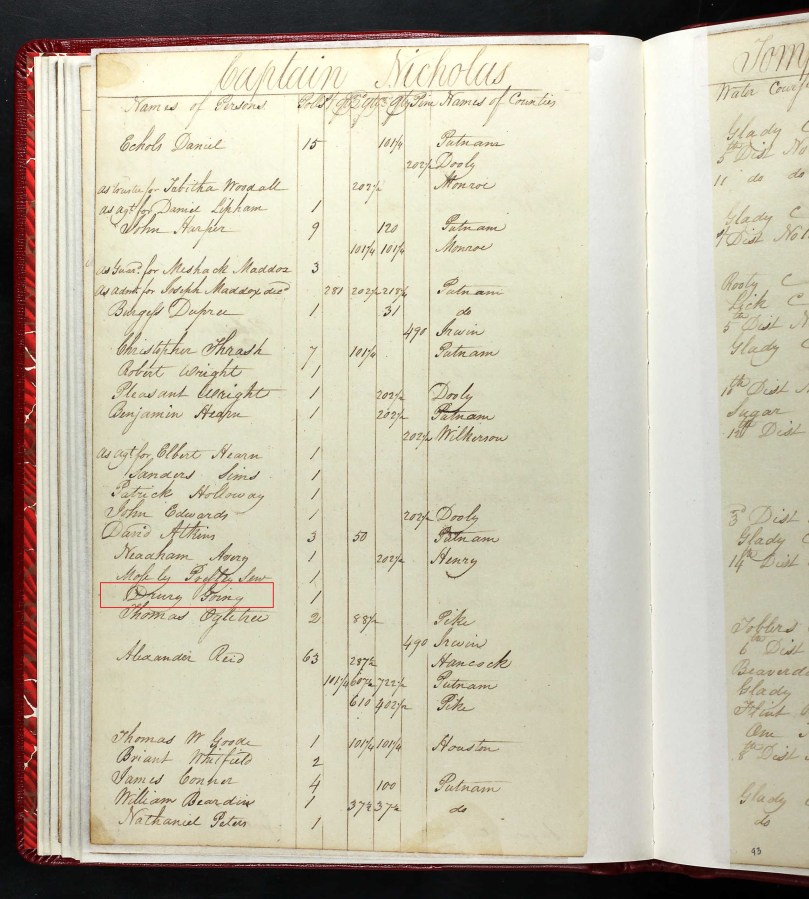 Captain Nicholus
Names of Persons Polls 1st Qy 2d Qy 3 Qy Pine Names of Counties
Echols Daniel 15 101¼ Putnam
202½ Dooly
as trustee for Tabitha Woodall 202½ Monroe
as agt for Daniel Lipham 1
John Harper 9 120 Putnam
101¼ 101¼ Monroe
as Guard for Meshack Maddox 3
as admr for Joseph Maddox decd 281 202½ 218¼ Putnam
Burgess Dupree 1 31 do
490 Irwin
Christopher Thrash 7 101¼ Putnam
Robert Wright 1
Pleasant Wright 1 202½ Dooly
Benjamin Hearn 1 202½ Putnam
202½ Wilkerson
as agt for Elbert Hearn 1
Sanders Sims 1
Patrick Holloway 1
John Edwards 1 202½ Dooly
David Atkins 3 50 Putnam
Neadham Avery 1 202½ Henry
Mosely 1
Drury Going 1
Thomas Ogletree 2 88½ Pike
490 Irwin
Alexander Reid 63 287½ Hancock
101¼ 607½ 722½ Putnam
610 402½ Pike
Thomas W Goode 1 101¼ 101¼ Houston
Briant Whitfield 2
James Connor 4 100 Putnam
William Bearden 1 37½ 37½ do
Nathaniel Peters 1
Tomp
Water Course
Glady C
5th Dist No
11 do do
Glady C
4 Dist No 1
Rooty C
Lick C
5th Dist N
Glady C
10th Dist
Sugar
Dist
3 Dist
Glady C
14th Dist
Toblers
6th Dist
Beaverda
Glady
Flint
One
8th Dist
Glady
do
93